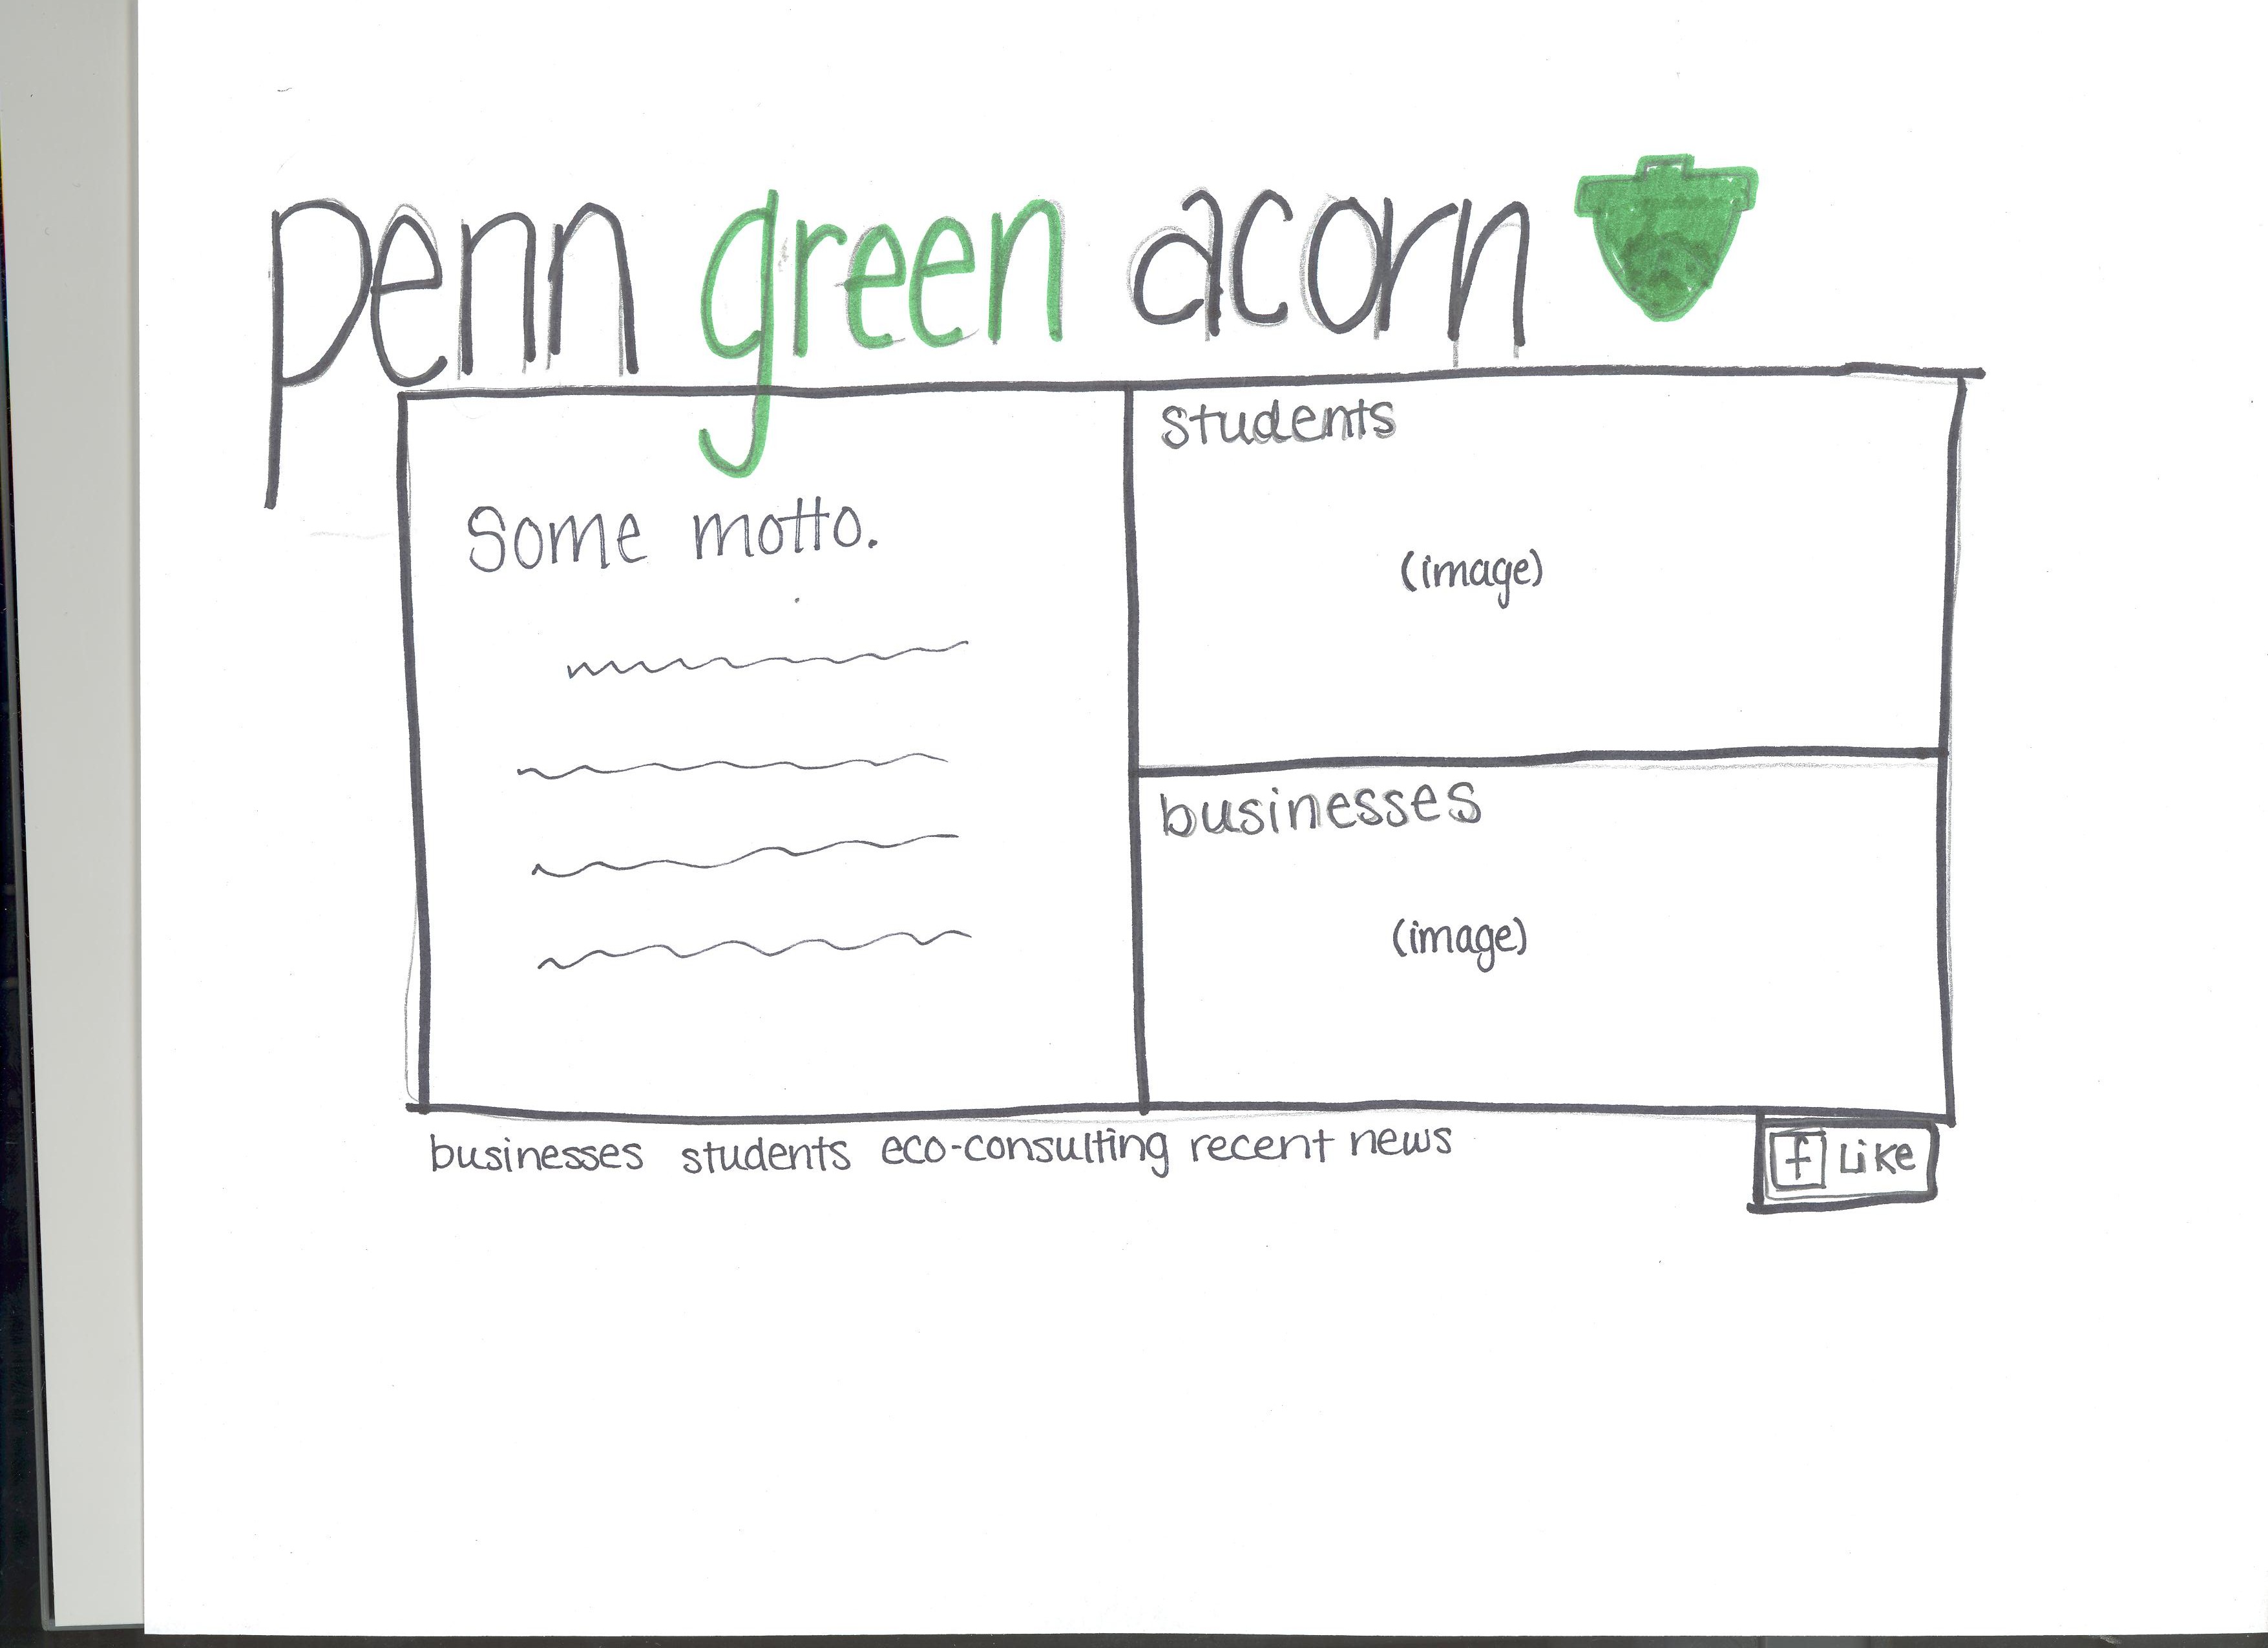 penn green acorn
Some motto.
students
(image)
businesses
(image)
businesses students eco-consulting recent news
f Like